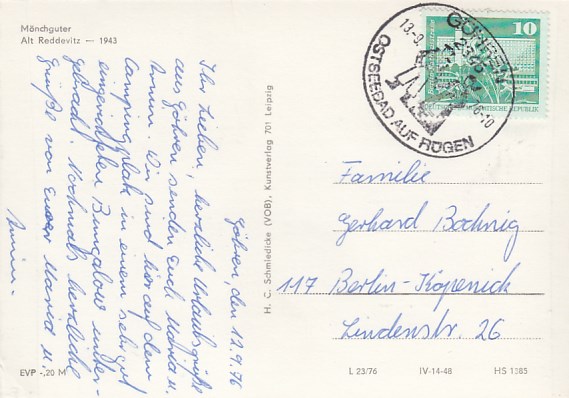 Mönchguter
Alt Reddevitz — 1943
Göhren, den 12.9.76
Ihr Lieben! herzliche Urlaubsgrüße
aus Göhren senden Euch Maria u.
Armin. Wir sind hier auf dem
Campingplatz in einem sehr gut
eingerichteten Bungalow unter-
gebracht. Nochmals herzliche
Grüße von Eurer Maria u.
Armin.
H. C. Schmiedicke (VOB), Kunstverlag 701 Leipzig
GÖHREN
2345
13.-9.
OSTSEEBAD AUF RÜGEN
10
DEUTSCHE DEMOKRATISCHE REPUBLIK
Familie
Gerhard Bochnig
117 Berlin-Köpenick
Lindenstr. 26
EVP -,20 M
L 23/76 IV-14-48 HS 1385